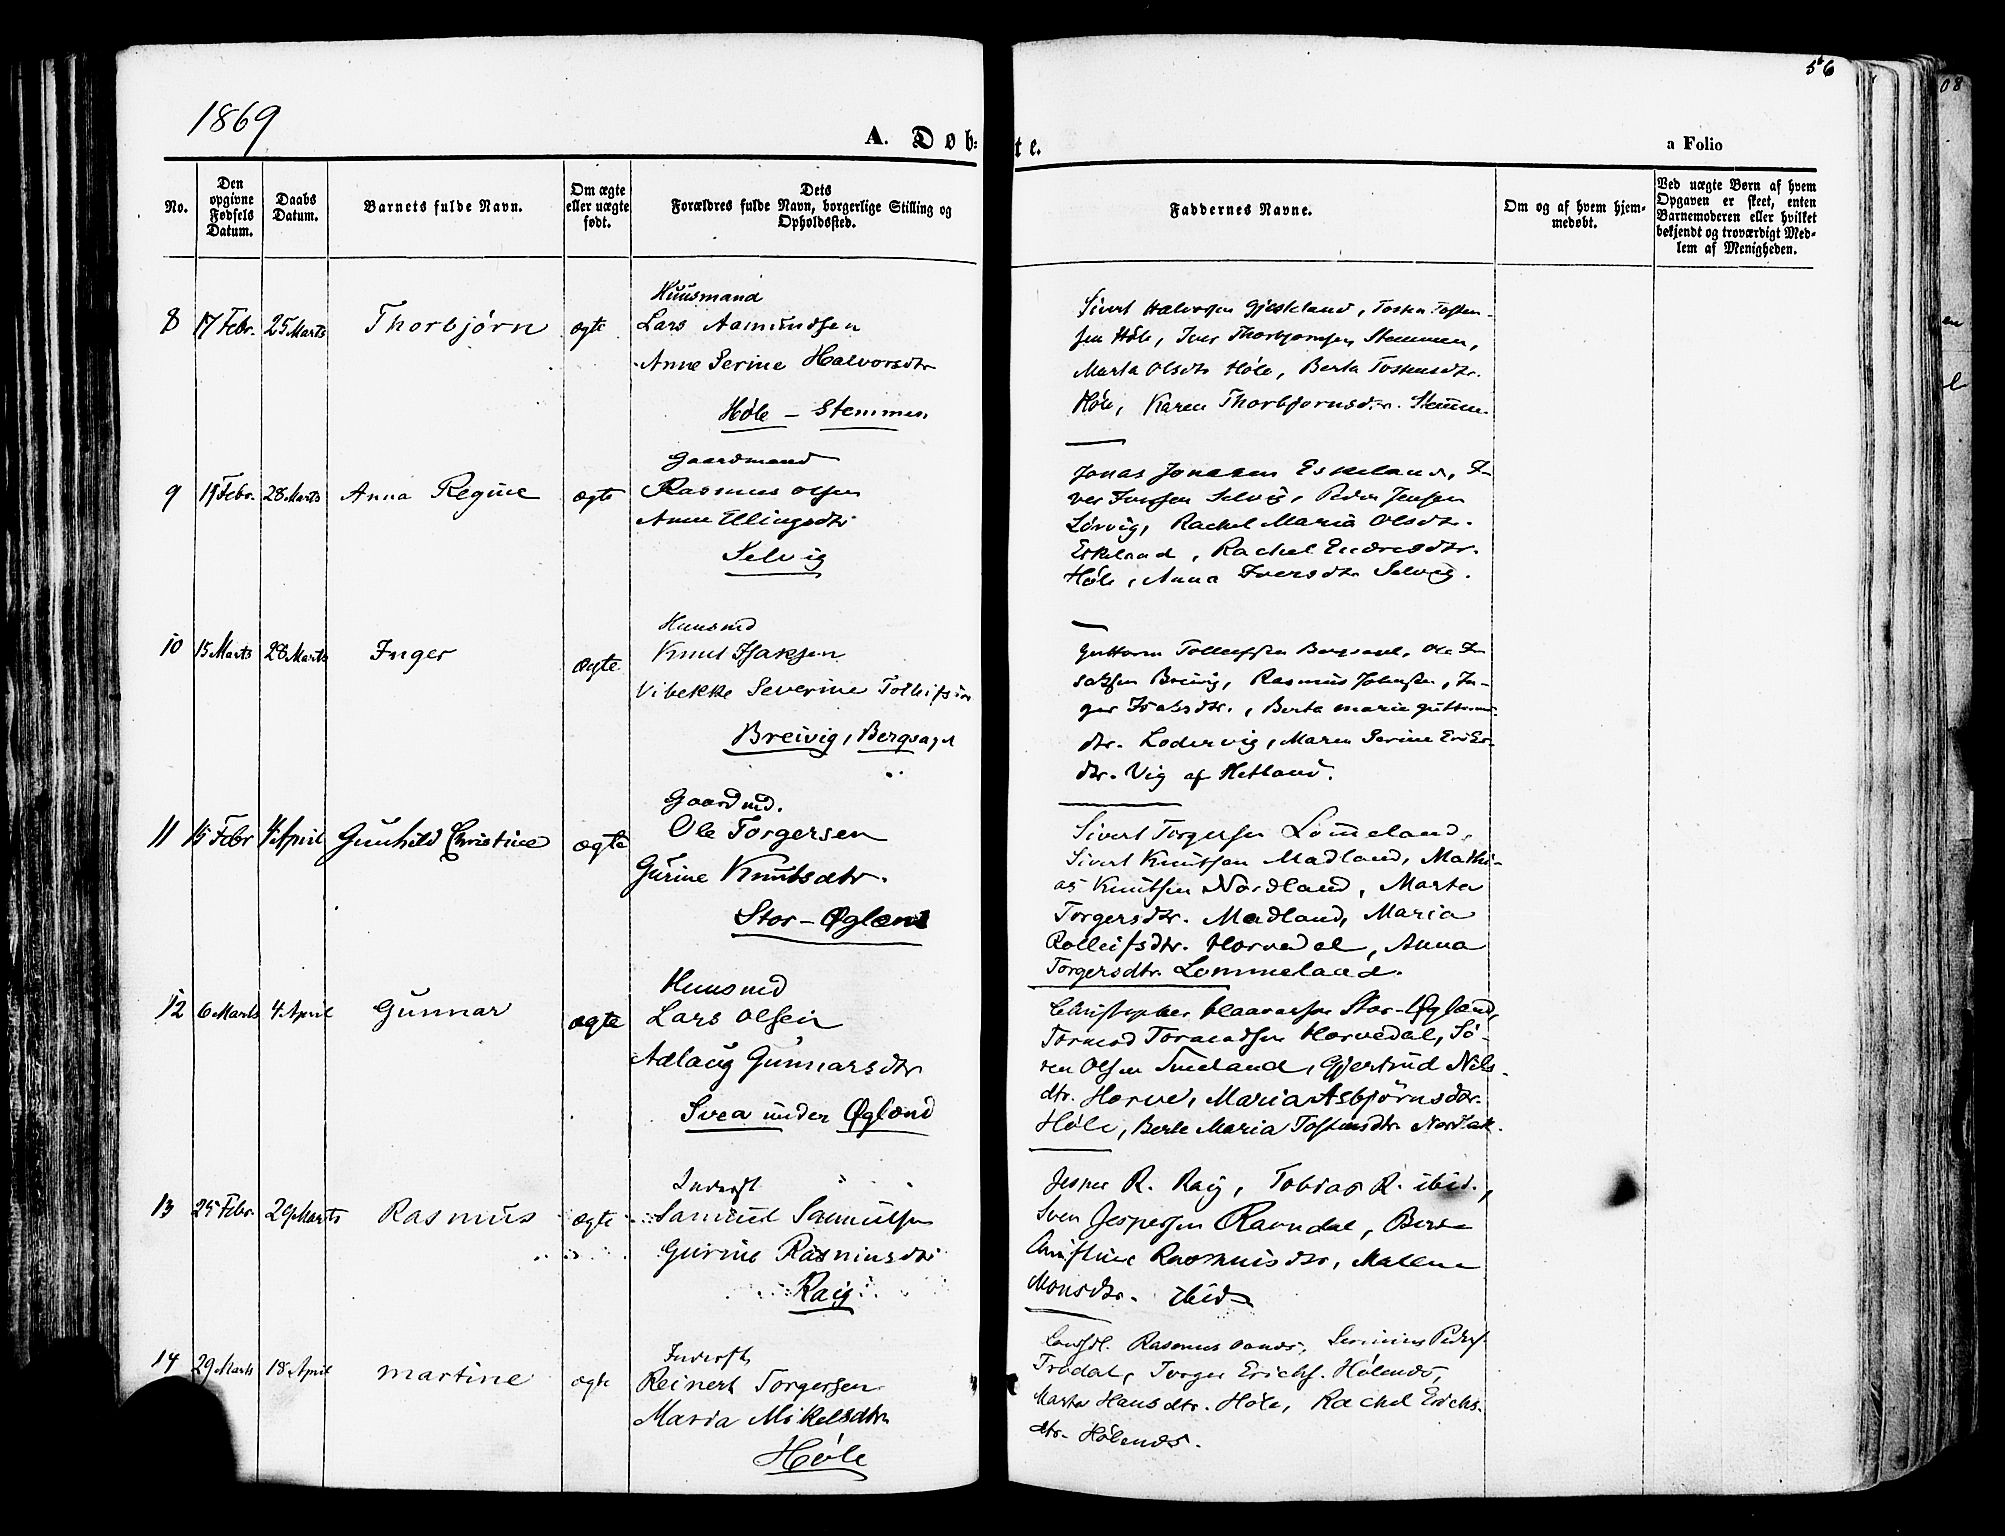 1869
56
A. Døb-
te.
a Folio
No.
Den opgivne Fødsels Datum.
Daabs Datum.
Barnets fulde Navn.
Om ægte eller uægte født.
Dets Forældres fulde Navn, borgerlige Stilling og Opholdssted.
Faddernes Navne.
Om og af hvem hjemmedøbt.
Ved uægte Børn af hvem Opgaven er skeet, enten Barnemoderen eller hvilket bekjendt og troværdigt Medlem af Menigheden.
8 17 Febr. 25 Marts Thorbjørn ægte
Huusmand
Lars Aamundsen
Anne Serine Halvorsdtr
Høle - Stemmen
Sivert Halvorsen Gjeskeland, Tosten Tosten-
sen Høle, Iver Thorbjørnsen Stemmen,
Marta Olsdtr Høle, Berta Tostensdtr.
Høle, Karen Thorbjørnsdtr. Stemmen
9 19 Febr. 28 Marts Anna Regine ægte
Gaardmand
Rasmus Olsen
Anne Ellingsdtr
Selvig
Jonas Jonasen Eskeland, I-
ver Iversen Selvig, Peder Jensen
Lørvig, Rachel Maria Olsdtr.
Eskeland, Rachel Endresdtr.
Høle, Anna Iversdtr Selvig.
10 15 Marts 28 Marts Inger ægte
Huusmd
Knut Isaksen
Vibekke Severine Tollifsdtr
Breivig, Bergsagel
Guttorm Tollefsen Bergsagel, Ole I-
saksen Breivig, Rasmus Johnsen, In-
ger Isaksdtr., Berta Marie Guttorms-
dtr. Lodervig, Maren Serine Eriks-
dtr. Vig af Hetland.
11 15 Febr 4 April Gunhild Christine ægte
Gaardmd.
Ole Torgersen
Gurine Knutsdtr.
Stor-Øgland
Sivert Torgersen Lommeland,
Sivert Knutsen Madland, Mathi-
as Knutsen Nordland, Marta
Torgersdtr. Madland, Maria
Rolleifsdtr. Horvedal, Anna
Torgersdtr. Lommeland.
12 6 Marts 4 April Gunnar ægte
Huusmd
Lars Olsen
Adlaug Gunnarsdtr
Svea under Øgland
Christopher Haavarsen Stor-Øgland,
Tormod Tormodsen Horvedal, Sø-
ren Olsen Imeland, Gjertrud Nils-
dtr. Horve, Maria Asbjørnsdtr.
Høle, Berte Maria Tostensdtr
13 25 Febr. 29 Marts Rasmus ægte
Inderst
Samuel Samuelsen
Gurine Rasmusdtr
Raig
Jesper R. Raig, Tobias R. ibid.,
Sven Jespersen Ravndal, Berta
Christine Rasmusdtr, Malene
Monsdtr. ibid
14 29 Marts 18 April Martine ægte
Inderst
Reinert Torgersen
Maria Mikelsdtr
Høle
Rasmus
Trodal, Torger Erichs. Hølends,
Marta Hansdtr. Høle, Rachel Erichs-
dtr. Hølends.